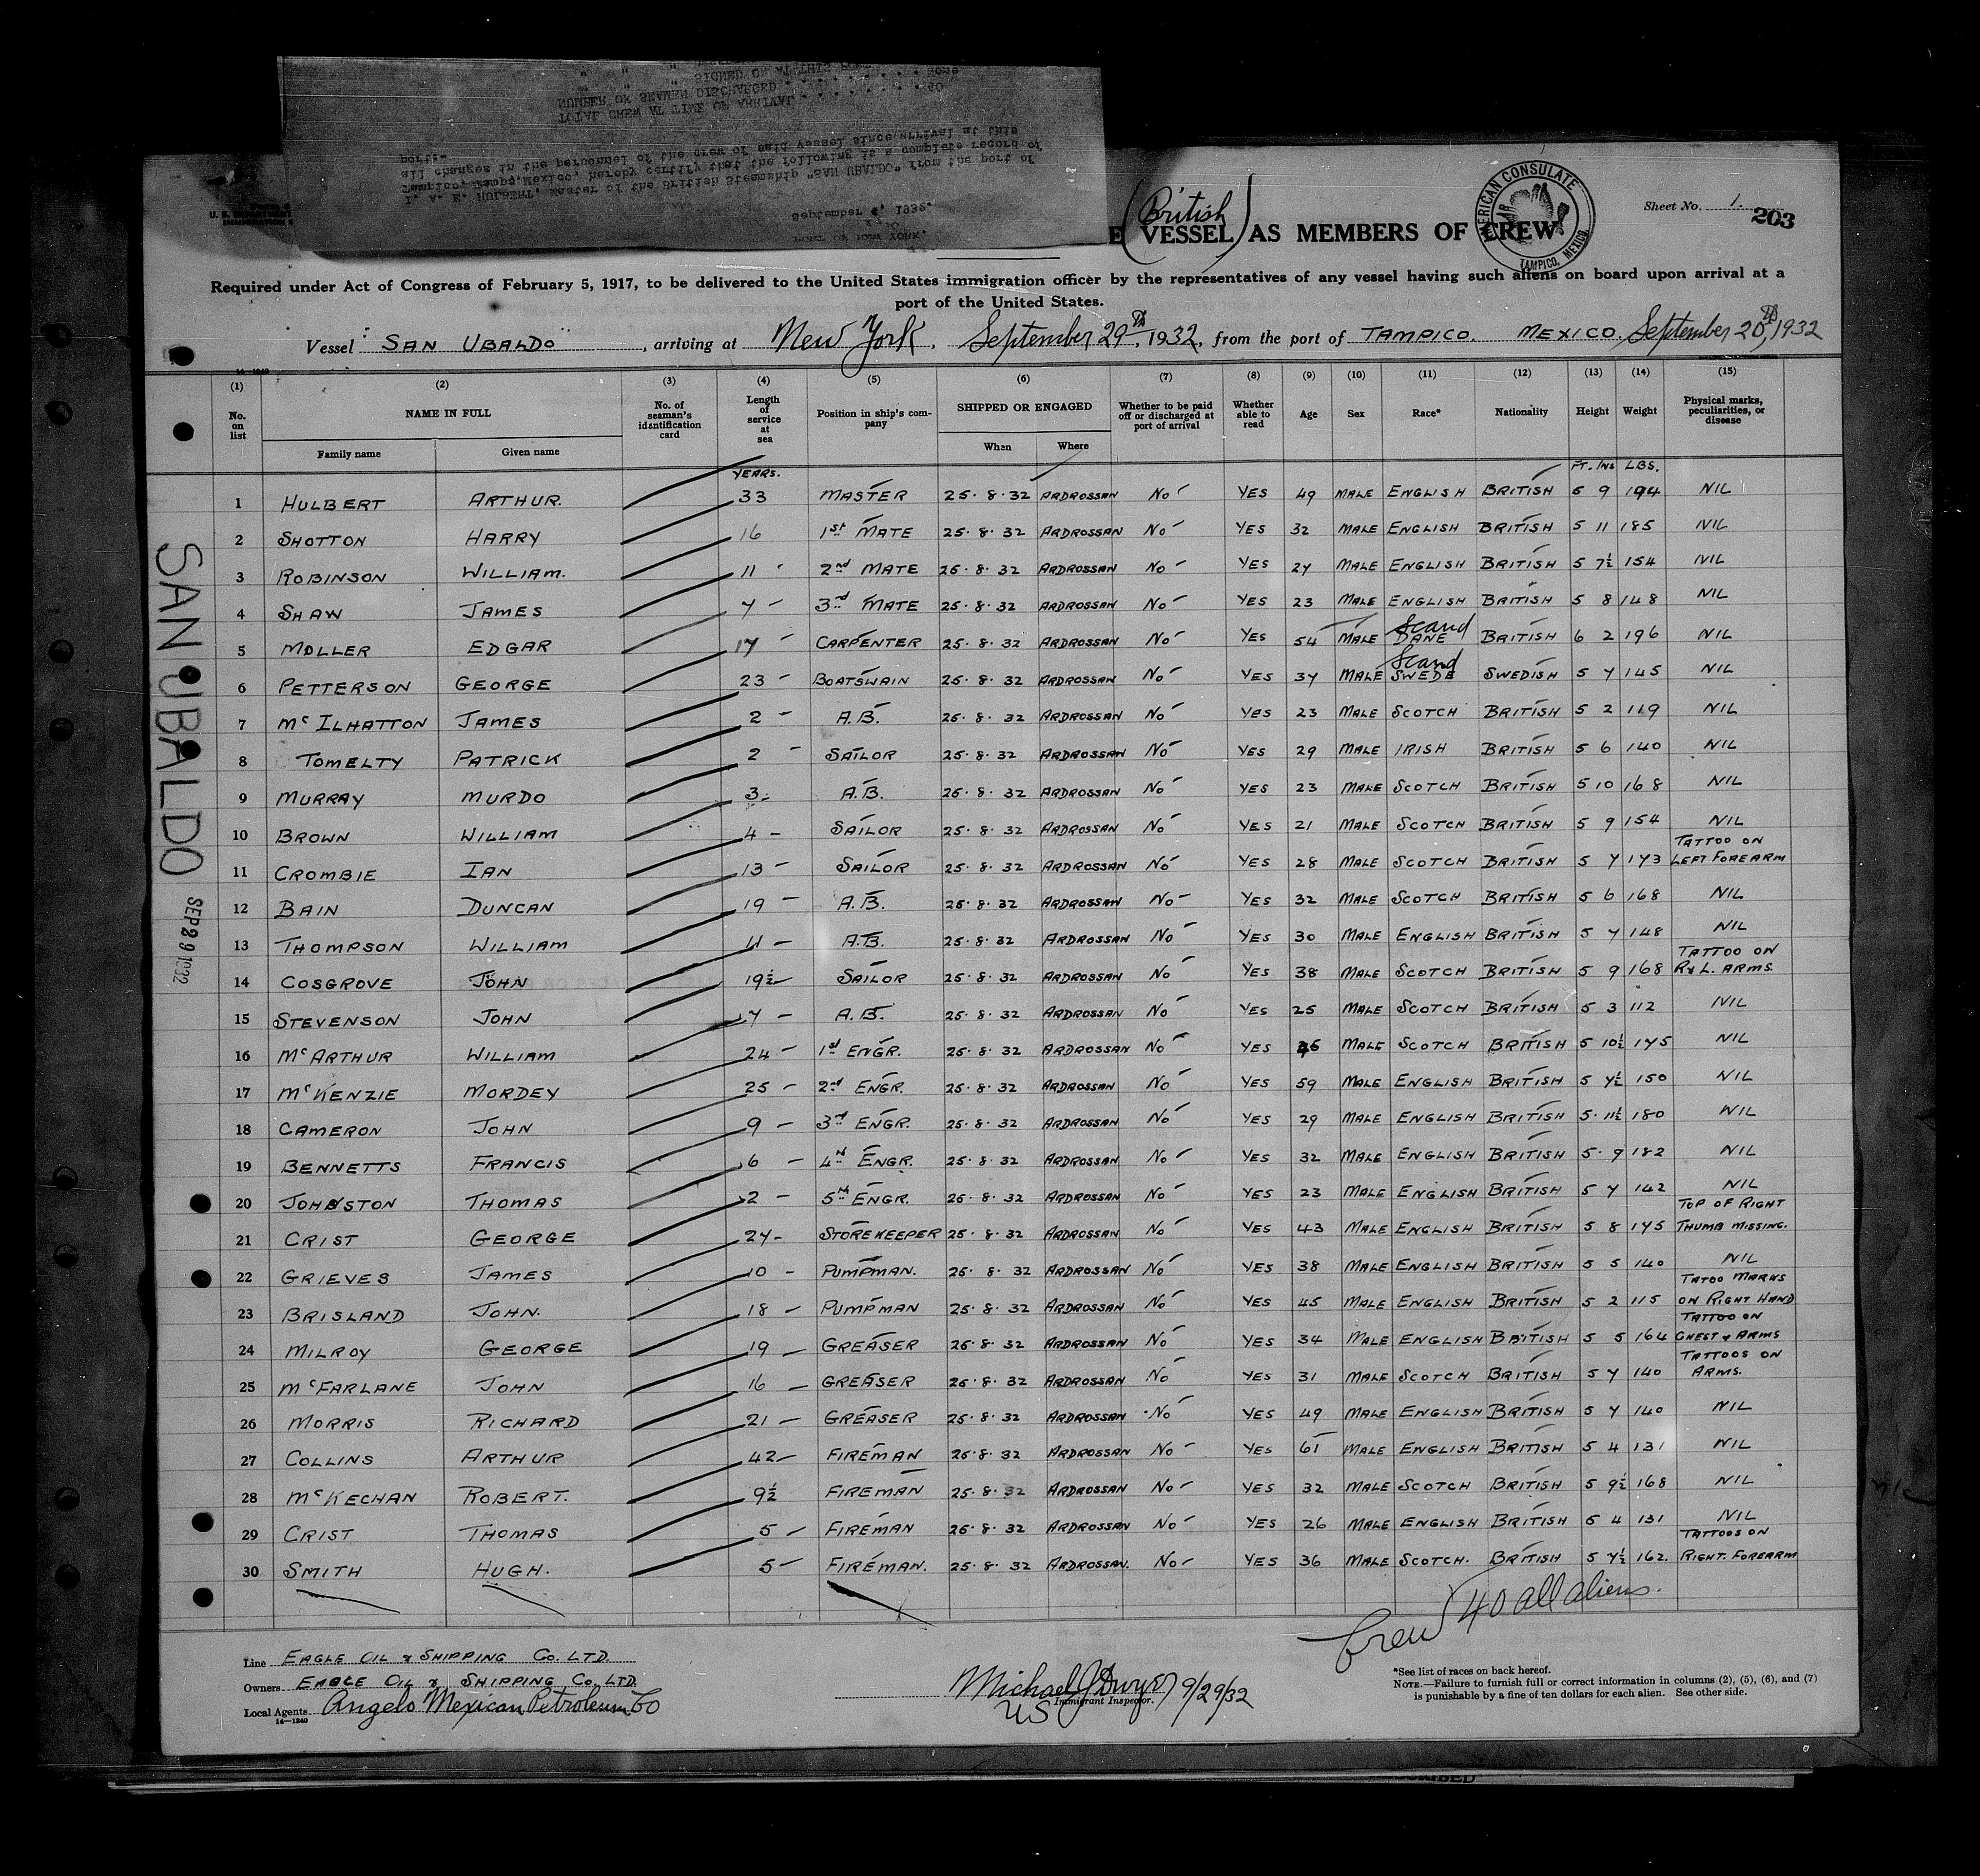 " " SIGNED ON AT THIS PORT . . . . . . . . None
NUMBER OF SEAMEN DISCHARGED . . . . . . . .
TOTAL CREW AT TIME OF ARRIVAL . . . . . . . 40
port:-
all changes in the personnel of the crew of said vessel since arrival at this
Tampico, Mexico, hereby certify that the following is a complete record of
I, A. E. HULBERT, Master of the British Steamship "SAN UBALDO" from the port of
September 1932.
PORT OF NEW YORK.
(British)
E VESSEL AS MEMBERS OF CREW
AMERICAN CONSULATE
TAMPICO, MEXICO
Sheet No. 1.
203
Required under Act of Congress of February 5, 1917, to be delivered to the United States immigration officer by the representatives of any vessel having such aliens on board upon arrival at a
port of the United States.
Vessel "SAN UBALDO", arriving at New York, September 29th, 1932, from the port of TAMPICO. MEXICO. September 20th, 1932
(1) (2) (3) (4) (5) (6) (7) (8) (9) (10) (11) (12) (13) (14) (15)
No. on list NAME IN FULL Family name Given name No. of seaman's identification card Length of service at sea Position in ship's company SHIPPED OR ENGAGED When Where Whether to be paid off or discharged at port of arrival Whether able to read Age Sex Race* Nationality Height Weight Physical marks, peculiarities, or disease
YEARS. FT. INS LBS.
1 HULBERT ARTHUR. 33 MASTER 25.8.32 ARDROSSAN No YES 49 MALE ENGLISH BRITISH 5 9 194 NIL
2 SHOTTON HARRY 16 1st MATE 25.8.32 ARDROSSAN No YES 32 MALE ENGLISH BRITISH 5 11 185 NIL
3 ROBINSON WILLIAM. 11 2nd MATE 25.8.32 ARDROSSAN No YES 27 MALE ENGLISH BRITISH 5 7½ 154 NIL
4 SHAW JAMES 7 3rd MATE 25.8.32 ARDROSSAN No YES 23 MALE ENGLISH BRITISH 5 8 148 NIL
5 MOLLER EDGAR 17 CARPENTER 25.8.32 ARDROSSAN No YES 54 MALE Scand DANE BRITISH 6 2 196 NIL
6 PETTERSON GEORGE 23 BOATSWAIN 25.8.32 ARDROSSAN No YES 37 MALE Scand SWEDE SWEDISH 5 7 145 NIL
7 McILHATTON JAMES 2 A.B. 25.8.32 ARDROSSAN No YES 23 MALE SCOTCH BRITISH 5 2 119 NIL
8 TOMELTY PATRICK 2 SAILOR 25.8.32 ARDROSSAN No YES 29 MALE IRISH BRITISH 5 6 140 NIL
9 MURRAY MURDO 3 A.B. 25.8.32 ARDROSSAN No YES 23 MALE SCOTCH BRITISH 5 10 168 NIL
10 BROWN WILLIAM 4 SAILOR 25.8.32 ARDROSSAN No YES 21 MALE SCOTCH BRITISH 5 9 154 NIL
11 CROMBIE IAN 13 SAILOR 25.8.32 ARDROSSAN No YES 28 MALE SCOTCH BRITISH 5 7 173 TATTOO ON LEFT FOREARM
12 BAIN DUNCAN 19 A.B. 25.8.32 ARDROSSAN No YES 32 MALE SCOTCH BRITISH 5 6 168 NIL
13 THOMPSON WILLIAM 11 A.B. 25.8.32 ARDROSSAN No YES 30 MALE ENGLISH BRITISH 5 7 148 NIL
14 COSGROVE JOHN 19½ SAILOR 25.8.32 ARDROSSAN No YES 38 MALE SCOTCH BRITISH 5 9 168 TATTOO ON R & L. ARMS
15 STEVENSON JOHN 7 A.B. 25.8.32 ARDROSSAN No YES 25 MALE SCOTCH BRITISH 5 3 112 NIL
16 McARTHUR WILLIAM 24 1st ENGR. 25.8.32 ARDROSSAN No YES 46 MALE SCOTCH BRITISH 5 10½ 175 NIL
17 McKENZIE MORDEY 25 2nd ENGR. 25.8.32 ARDROSSAN No YES 59 MALE ENGLISH BRITISH 5 7½ 150 NIL
18 CAMERON JOHN 9 3rd ENGR. 25.8.32 ARDROSSAN No YES 29 MALE ENGLISH BRITISH 5 11½ 180 NIL
19 BENNETTS FRANCIS 6 4th ENGR. 25.8.32 ARDROSSAN No YES 32 MALE ENGLISH BRITISH 5 9 182 NIL
20 JOHNSTON THOMAS 2 5th ENGR. 25.8.32 ARDROSSAN No YES 23 MALE ENGLISH BRITISH 5 7 142 NIL
21 CRIST GEORGE 27 STOREKEEPER 25.8.32 ARDROSSAN No YES 43 MALE ENGLISH BRITISH 5 8 175 TOP OF RIGHT THUMB MISSING.
22 GRIEVES JAMES 10 PUMPMAN. 25.8.32 ARDROSSAN No YES 38 MALE ENGLISH BRITISH 5 5 140 NIL
23 BRISLAND JOHN. 18 PUMPMAN 25.8.32 ARDROSSAN No YES 45 MALE ENGLISH BRITISH 5 2 115 TATOO MARKS ON RIGHT HAND
24 MILROY GEORGE 19 GREASER 25.8.32 ARDROSSAN No YES 34 MALE ENGLISH BRITISH 5 5 164 TATTOO ON CHEST & ARMS
25 McFARLANE JOHN 16 GREASER 25.8.32 ARDROSSAN No YES 31 MALE SCOTCH BRITISH 5 7 140 TATTOOS ON ARMS.
26 MORRIS RICHARD 21 GREASER 25.8.32 ARDROSSAN No YES 49 MALE ENGLISH BRITISH 5 7 140 NIL
27 COLLINS ARTHUR 42 FIREMAN 25.8.32 ARDROSSAN No YES 61 MALE ENGLISH BRITISH 5 4 131 NIL
28 McKECHAN ROBERT. 9½ FIREMAN 25.8.32 ARDROSSAN No YES 32 MALE SCOTCH BRITISH 5 9½ 168 NIL
29 CRIST THOMAS 5 FIREMAN 25.8.32 ARDROSSAN No YES 26 MALE ENGLISH BRITISH 5 4 131 NIL
30 SMITH HUGH. 5 FIREMAN. 25.8.32 ARDROSSAN. No YES 36 MALE SCOTCH. BRITISH 5 7½ 162. TATTOOS ON RIGHT FOREARM
SAN UBALDO
SEP 29 1932
Crew 40 all aliens.
Line EAGLE OIL & SHIPPING Co. LTD.
Owners EAGLE OIL & SHIPPING Co. LTD.
Local Agents Angelo Mexican Petroleum Co
14—1240
Michael J Dwyer 9/29/32
US Immigrant Inspector.
*See list of races on back hereof.
NOTE.—Failure to furnish full or correct information in columns (2), (5), (6), and (7)
is punishable by a fine of ten dollars for each alien. See other side.